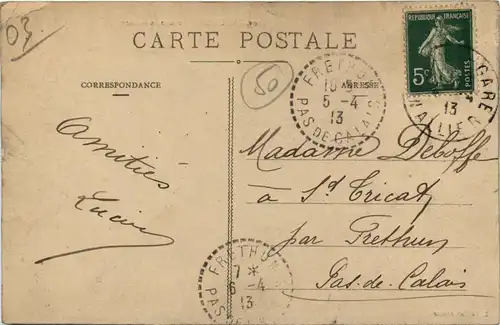 03.
CARTE POSTALE
RÉPUBLIQUE FRANÇAISE
5c
POSTES
50
CORRESPONDANCE
ADRESSE
FRETHUN
5-4
13
PAS DE CALAIS
GARE
13
Amitiés
Lucien
Madame Deboffe
à St Tricat
par Frethun
Pas-de-Calais
FRETHUN
7 *
6-4
13
PAS